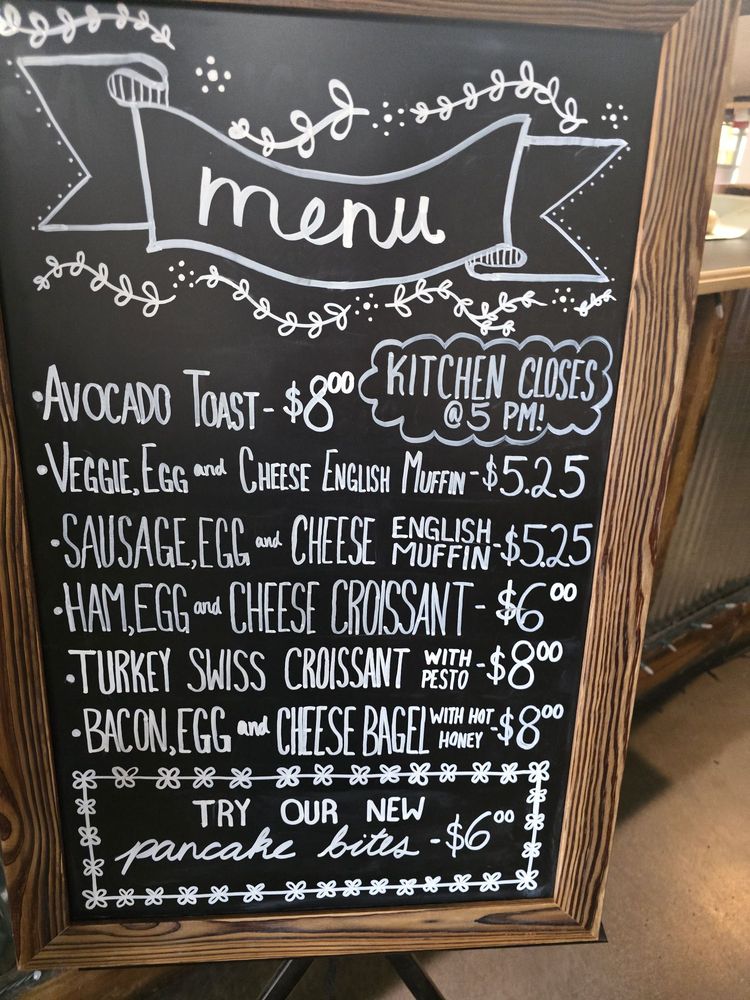 menu
•AVOCADO TOAST- $8⁰⁰
KITCHEN CLOSES
@ 5 PM!
•VEGGIE, EGG and CHEESE ENGLISH MUFFIN-$5.25
•SAUSAGE, EGG and CHEESE ENGLISH MUFFIN-$5.25
•HAM, EGG and CHEESE CROISSANT- $6⁰⁰
•TURKEY SWISS CROISSANT WITH PESTO-$8⁰⁰
•BACON, EGG and CHEESE BAGEL WITH HOT HONEY-$8⁰⁰
TRY OUR NEW
pancake bites -$6⁰⁰